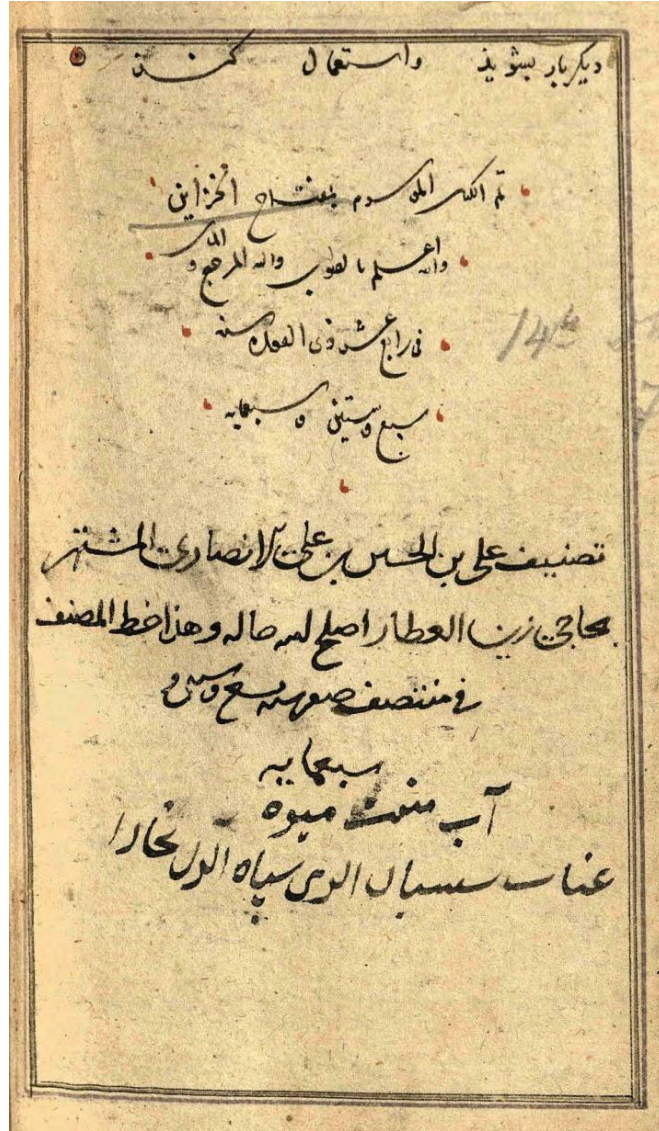 دیکر بار بشوید واستعمال کنند
تم الکتاب الموسوم بمفتاح الخزاین
والله اعلم بالصواب والیه المرجع و
المآب
فی رابع عشر ذی القعده سنه
سبع وستین و سبعمایه
14th
تصنیف علی بن الحسین بن علی الانصاری المشتهر
بحاجی زین العطار اصلح الله حاله وهذا خط المصنف
فی منتصف صفر سنه تسع وستین و
سبعمایه
آب هفت میوه
عناب سپستان الوی سیاه الوی بخارا